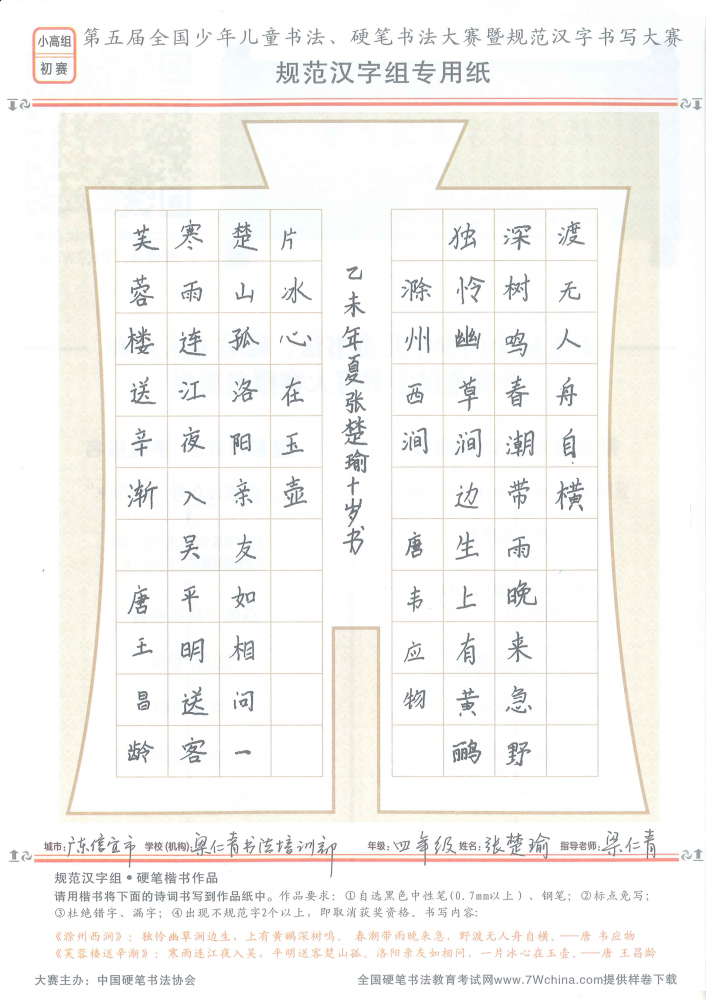 小高组
初赛
第五届全国少年儿童书法、硬笔书法大赛暨规范汉字书写大赛
规范汉字组专用纸
芙蓉楼送辛渐 唐王昌龄
寒雨连江夜入吴平明送客
楚山孤洛阳亲友如相问一
片冰心在玉壶
乙未年夏张楚瑜十岁书
滁州西涧 唐韦应物
独怜幽草涧边生上有黄鹂
深树鸣春潮带雨晚来急野
渡无人舟自横
城市：广东信宜市 学校(机构)：梁仁青书法培训部 年级：四年级 姓名：张楚瑜 指导老师：梁仁青
规范汉字组•硬笔楷书作品
请用楷书将下面的诗词书写到作品纸中。作品要求：①自选黑色中性笔(0.7mm以上)、钢笔；②标点免写；
③杜绝错字、漏字；④出现不规范字2个以上，即取消获奖资格。书写内容：
《滁州西涧》：独怜幽草涧边生，上有黄鹂深树鸣。 春潮带雨晚来急，野渡无人舟自横。——唐 韦应物
《芙蓉楼送辛渐》：寒雨连江夜入吴，平明送客楚山孤。洛阳亲友如相问，一片冰心在玉壶。——唐 王昌龄
大赛主办：中国硬笔书法协会 全国硬笔书法教育考试网www.7Wchina.com提供样卷下载